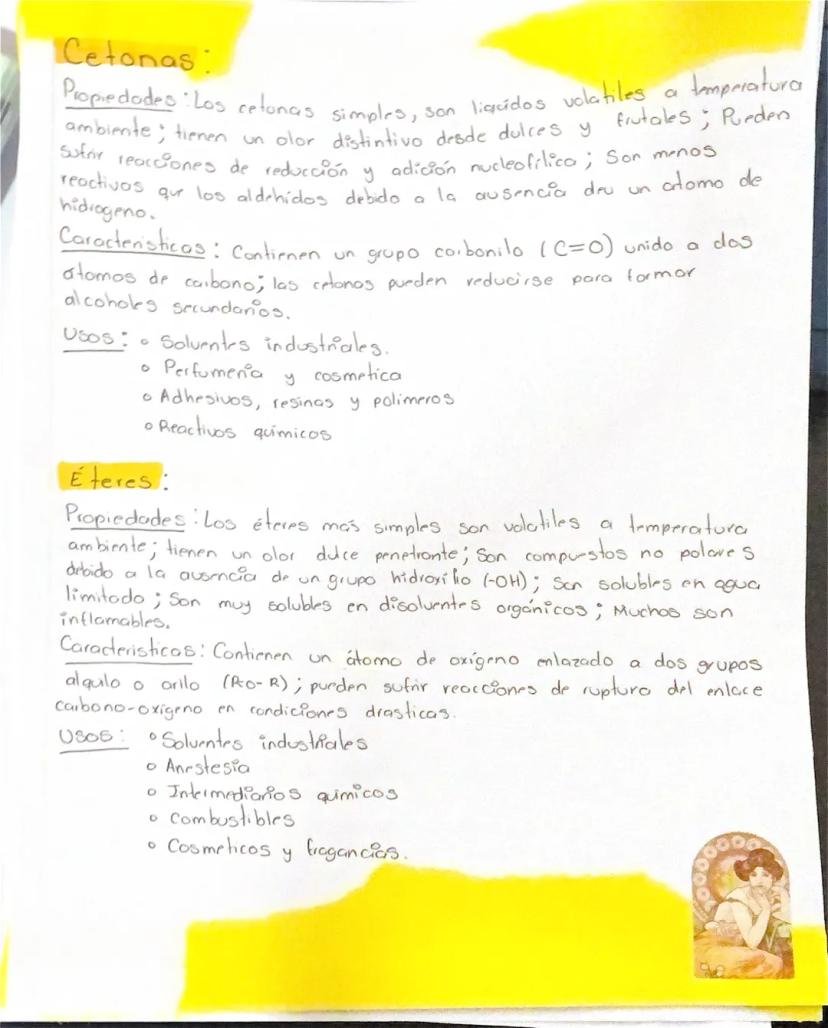 Cetonas:
Propiedades: Las cetonas simples, son liquidos volatiles a temperatura
ambiente; tienen un olor distintivo desde dulces y frutales; Pueden
sufrir reacciones de reducción y adición nucleofílica; Son menos
reactivas que los aldehídos debido a la ausencia deu un atomo de
hidrogeno.
Caracteristicas: Contienen un grupo carbonilo (C=O) unido a dos
átomos de carbono; las cetonas pueden reducirse para formar
alcoholes secundarios.
Usos: • Solventes industriales.
• Perfumería y cosmetica
• Adhesivos, resinas y polimeros
• Reactivos químicos
Éteres:
Propiedades: Los éteres más simples son volatiles a temperatura
ambiente; tienen un olor dulce penetrante; Son compuestos no polares
debido a la ausencia de un grupo hidroxilio (-OH); Son solubles en agua
limitado; Son muy solubles en disolventes orgánicos; Muchos son
inflamables.
Caracteristicas: Contienen un átomo de oxígeno enlazado a dos grupos
alquilo o arilo (R-O-R); pueden sufrir reacciones de ruptura del enlace
carbono-oxígeno en condiciones drasticas.
Usos: • Solventes industriales
• Anestesia
• Intermediarios químicos
• Combustibles
• Cosmeticos y fragancias.